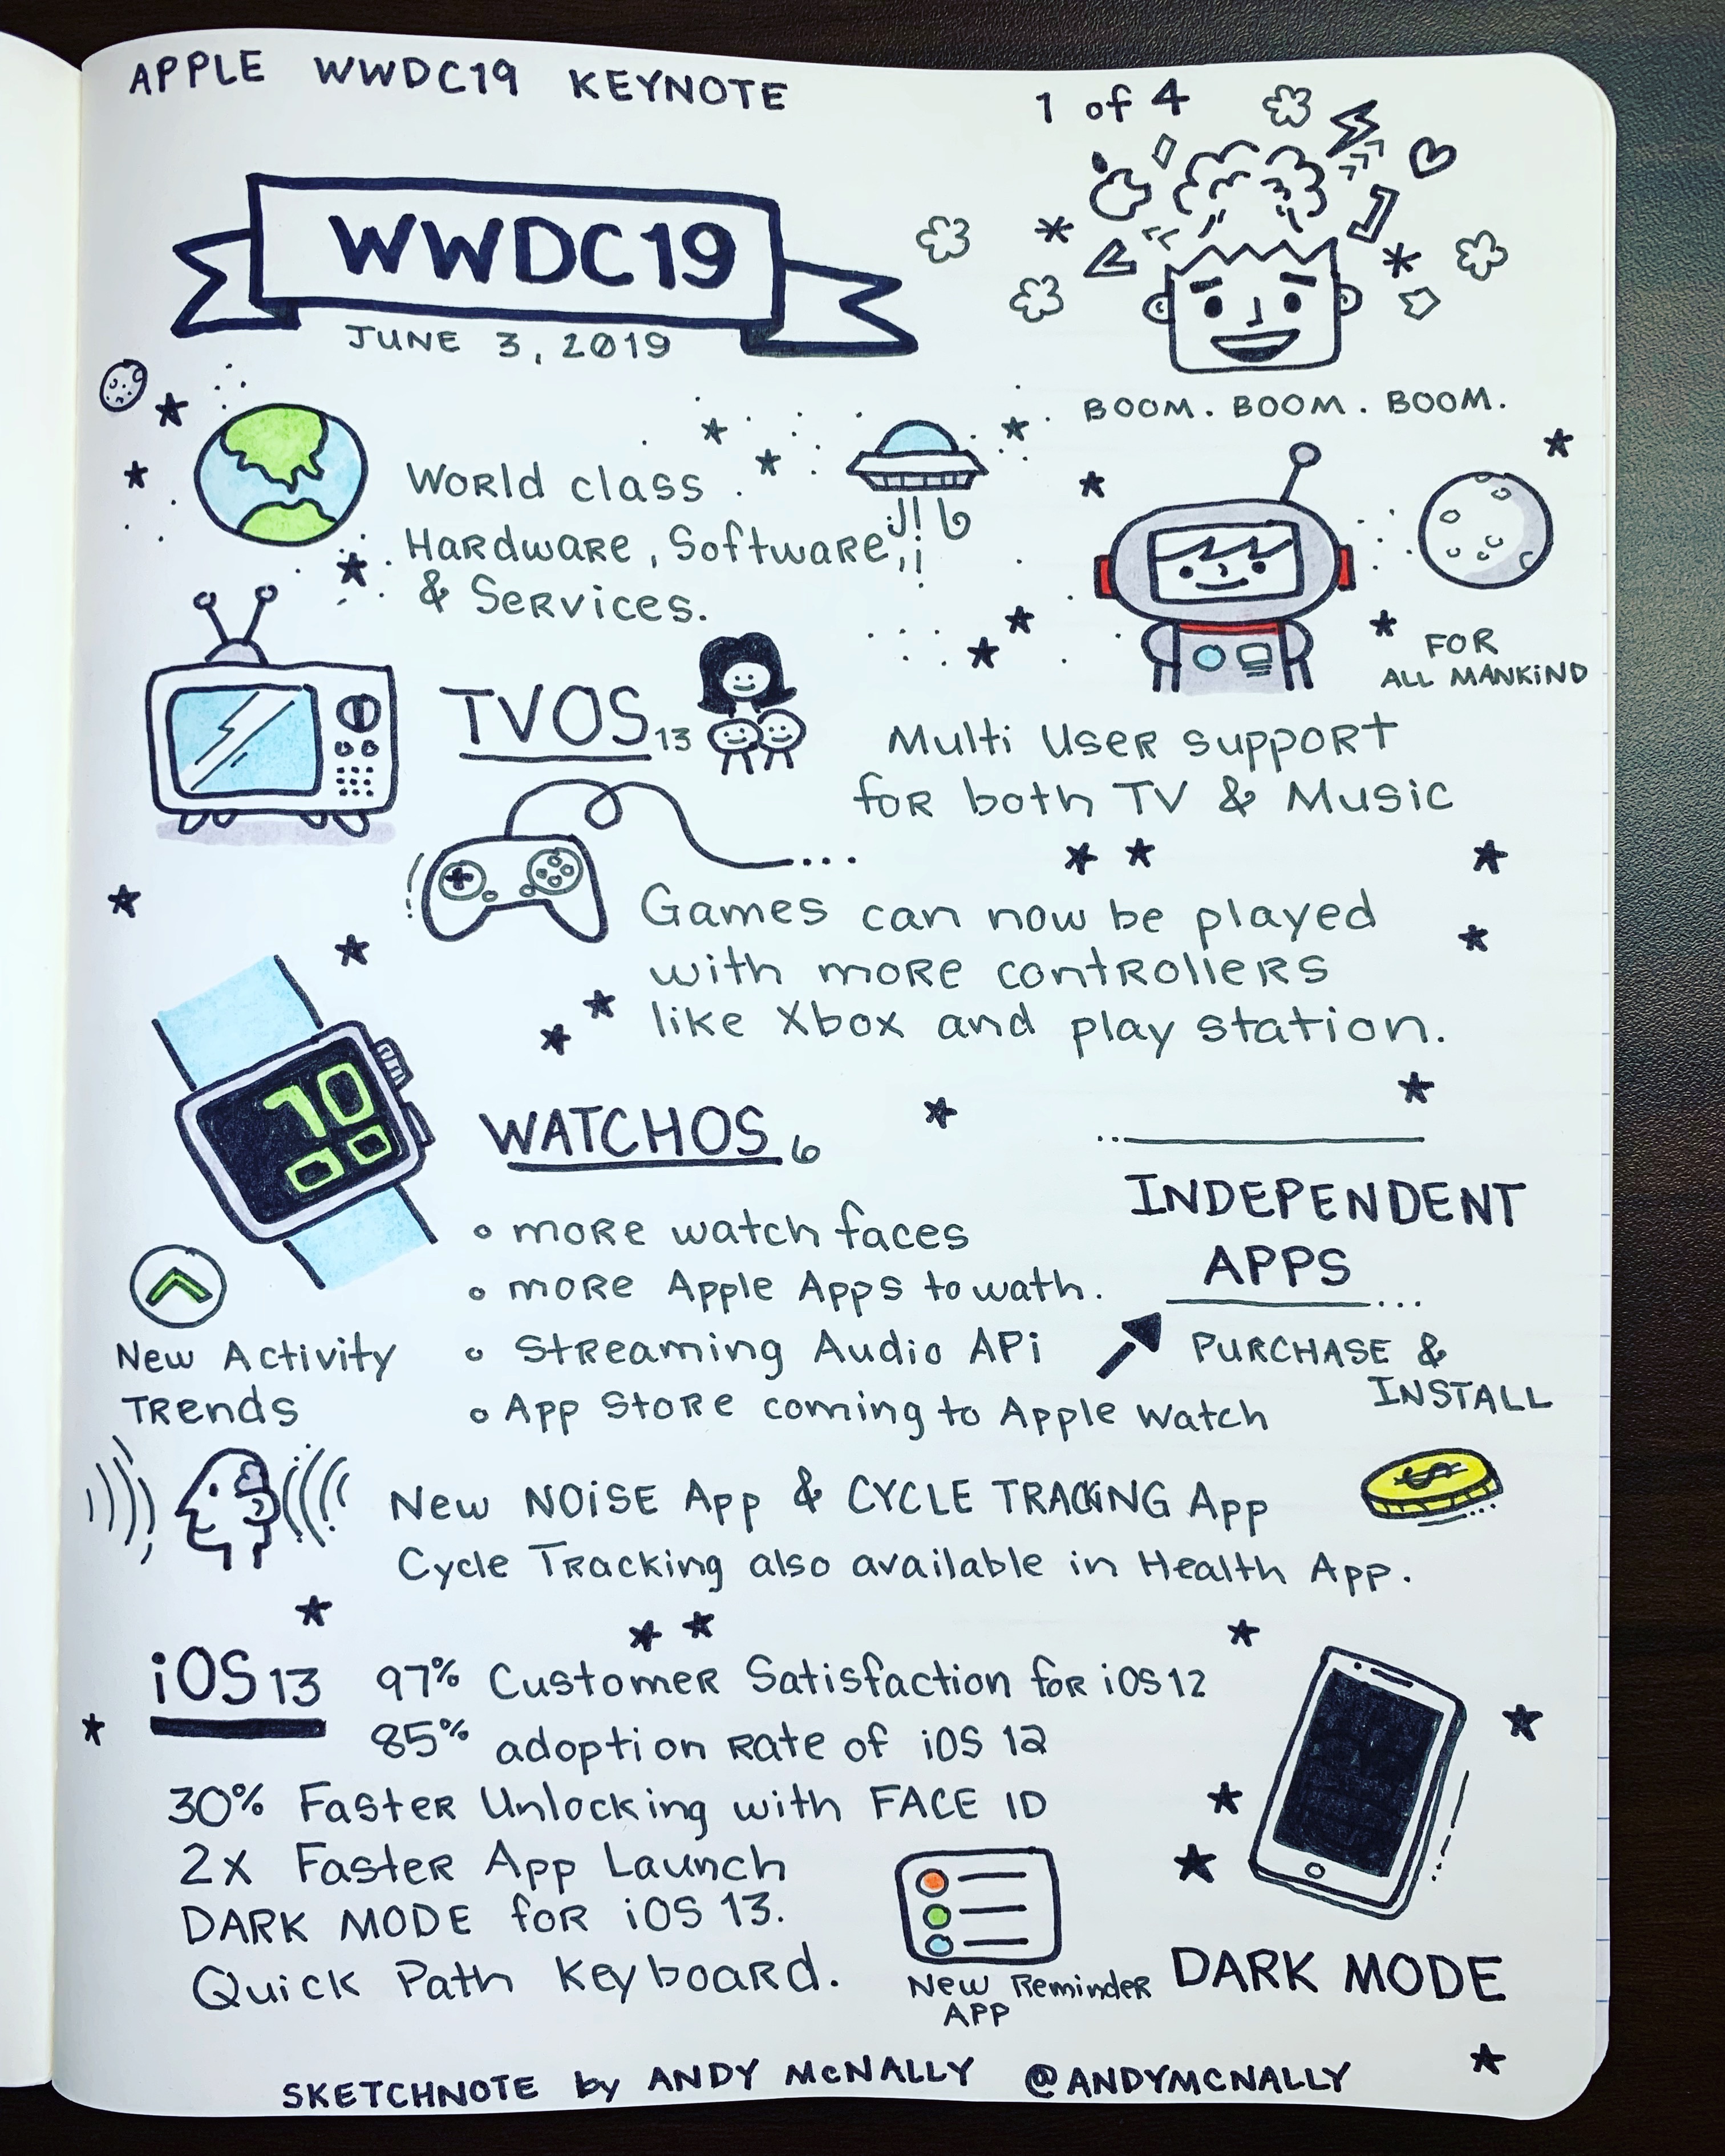 APPLE WWDC19 KEYNOTE
1 of 4
WWDC19
JUNE 3, 2019
BOOM. BOOM. BOOM.
World class
Hardware, Software,
& Services.
FOR
ALL MANKIND
TVOS 13
Multi User support
for both TV & Music
Games can now be played
with more controllers
like Xbox and play station.
10
00
WATCHOS 6
• more watch faces
• more Apple Apps to wath.
• Streaming Audio APi
• App Store coming to Apple Watch
INDEPENDENT
APPS
PURCHASE &
INSTALL
New Activity
Trends
$
New NOiSE App & CYCLE TRACKING App
Cycle Tracking also available in Health App.
iOS 13
97% Customer Satisfaction for iOS 12
85% adoption rate of iOS 12
30% Faster Unlocking with FACE ID
2x Faster App Launch
DARK MODE for iOS 13.
Quick Path Keyboard.
New Reminder
APP
DARK MODE
SKETCHNOTE by ANDY McNALLY @ANDYMCNALLY